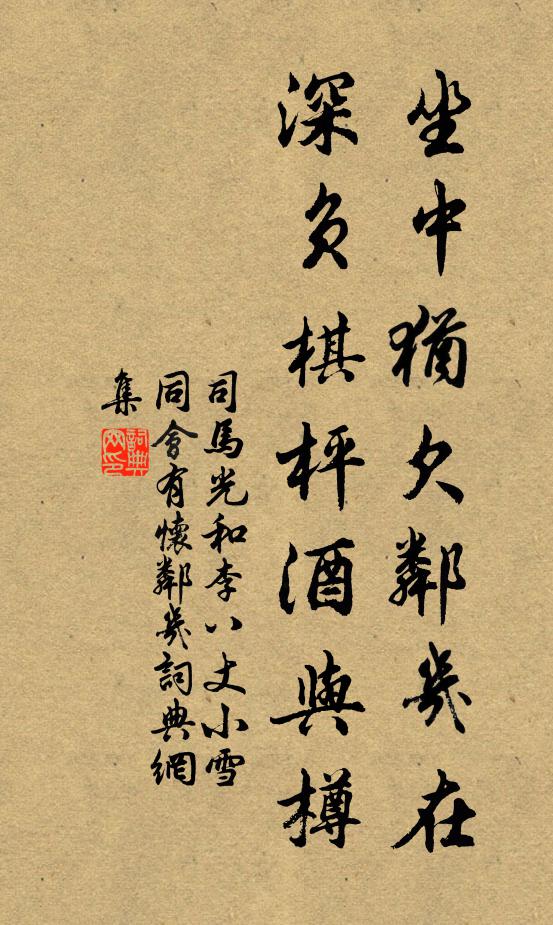 坐中猶欠鄰幾在
深負棋枰酒與樽
司馬光和李八丈小雪
同會有懷鄰幾詞典網
集
詞典
网印